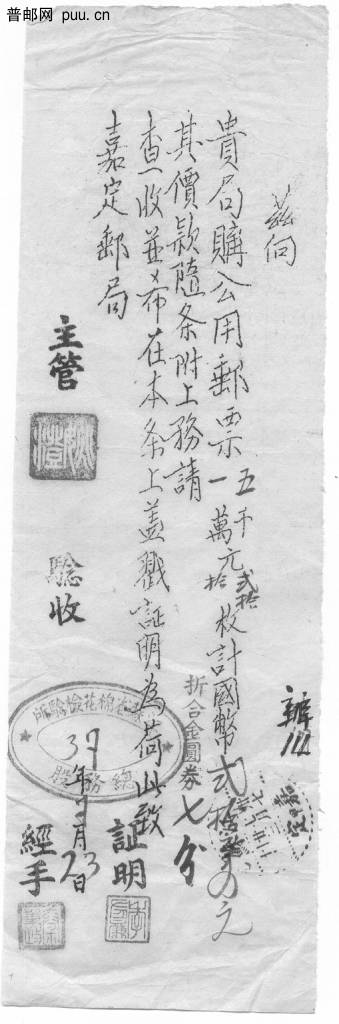 普邮网 puu.cn
茲向
貴局購公用郵票
五千
一萬元
貳拾
拾
枚計國幣貳拾萬〇元
其價款隨条附上務請
折合金圓券七分
查收並希在本条上蓋戳証明為荷此致
嘉定郵局
主管
驗收
証明
經手
棉花檢驗所
總務股
37年9月23日